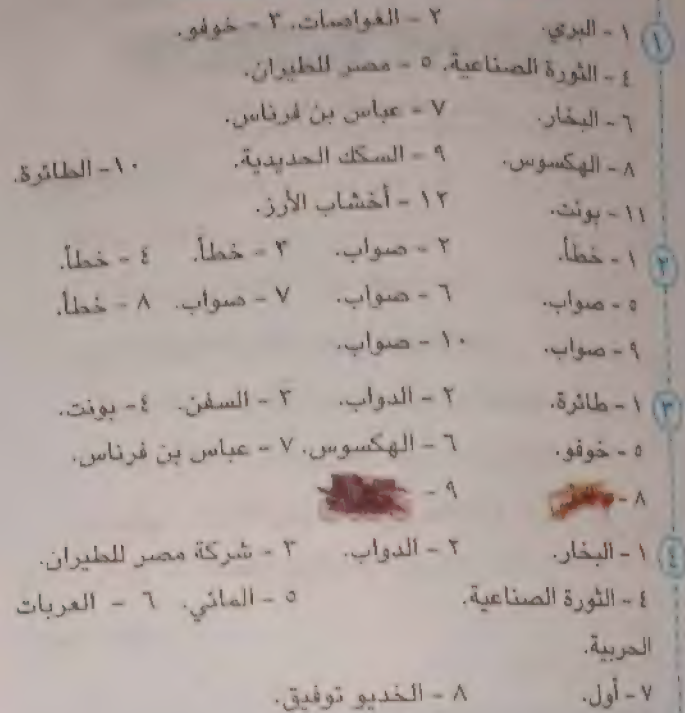 ١ ١ - البري. ٢ - الغواصات. ٣ - خوفو.
٤ - الثورة الصناعية. ٥ - مصر للطيران.
٦ - البخار. ٧ - عباس بن فرناس.
٨ - الهكسوس. ٩ - السكك الحديدية. ١٠ - الطائرة.
١١ - بونت. ١٢ - أخشاب الأرز.
٢ ١ - خطأ. ٢ - صواب. ٣ - خطأ. ٤ - خطأ.
٥ - صواب. ٦ - صواب. ٧ - صواب. ٨ - خطأ.
٩ - صواب. ١٠ - صواب.
٣ ١ - طائرة. ٢ - الدواب. ٣ - السفن. ٤ - بونت.
٥ - خوفو. ٦ - الهكسوس. ٧ - عباس بن فرناس.
٨ - ٩ -
٤ ١ - البخار. ٢ - الدواب. ٣ - شركة مصر للطيران.
٤ - الثورة الصناعية. ٥ - المائي. ٦ - العربات
الحربية.
٧ - أول. ٨ - الخديو توفيق.